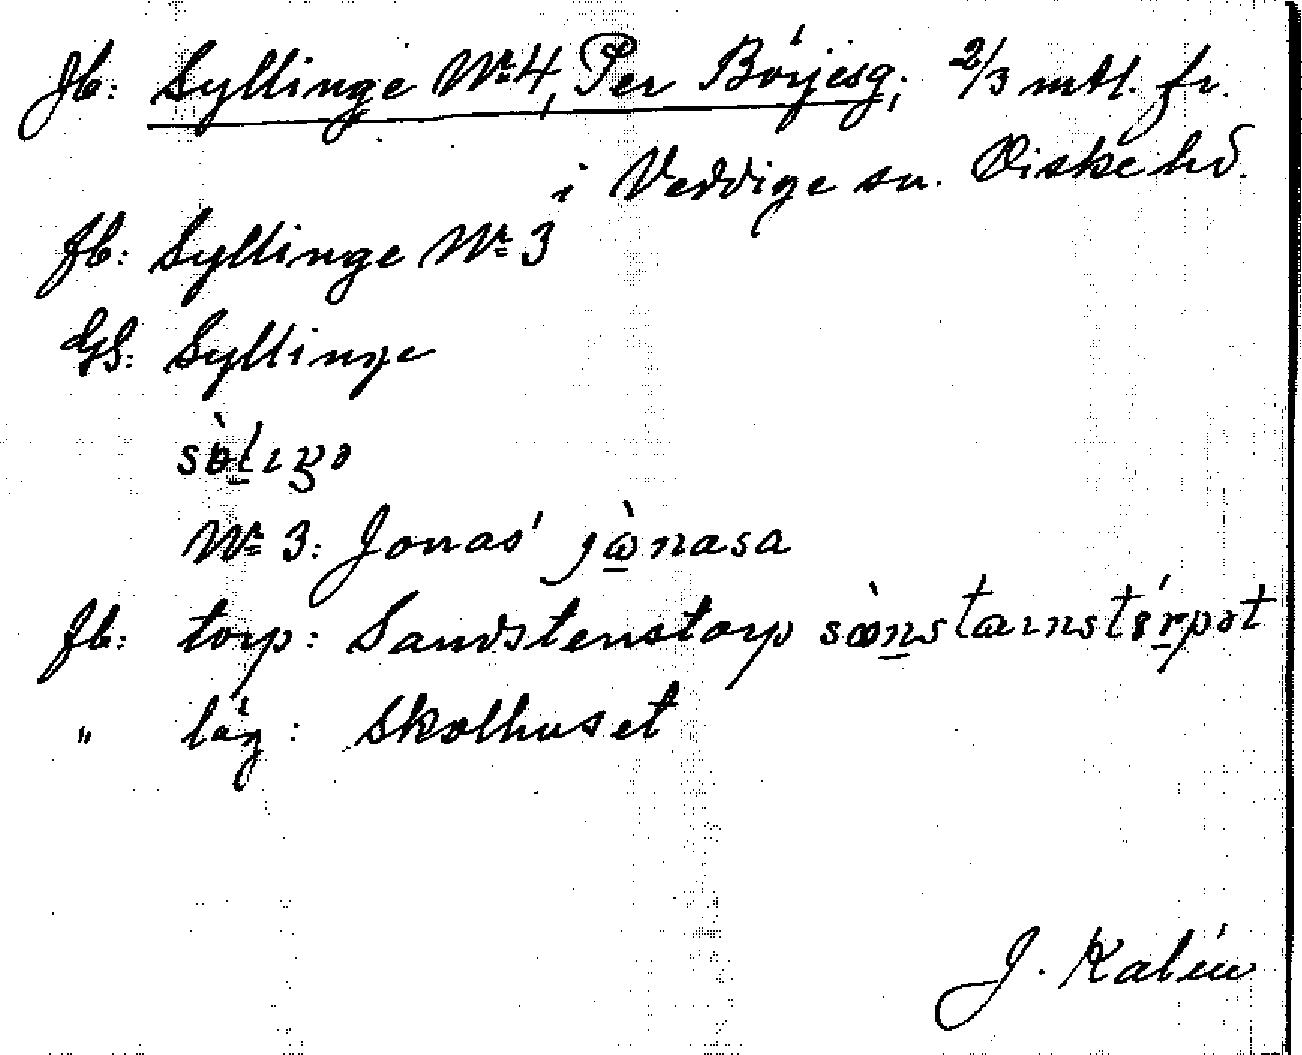 Jb: Syllinge Nr 4, Per Börjesg; 2/3 mtl. fr.
i Veddige sn. Viske hd.
Jb: Syllinge Nr 3
GS: Syllinge
Nr 3: Jonas' jònasa
Jb: torp: Sandstenstorp
" läg: Skolhuset
J. Kalén